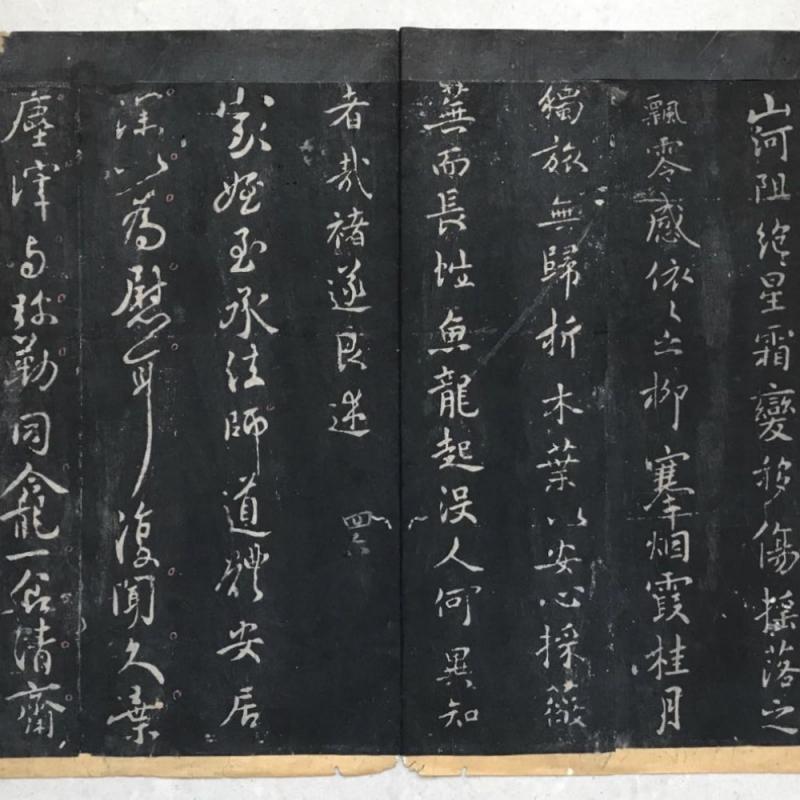 山河阻絶星霜變移傷搖落之
飄零感依々之柳塞烟霞桂月
獨旅無歸折木葉以安心採薇
蕪而長性魚龍起没人何異知
者哉褚遂良述
家姪至承法師道體安居
深以為慰耳復聞久棄
塵滓与弥勒同龕一食清齋